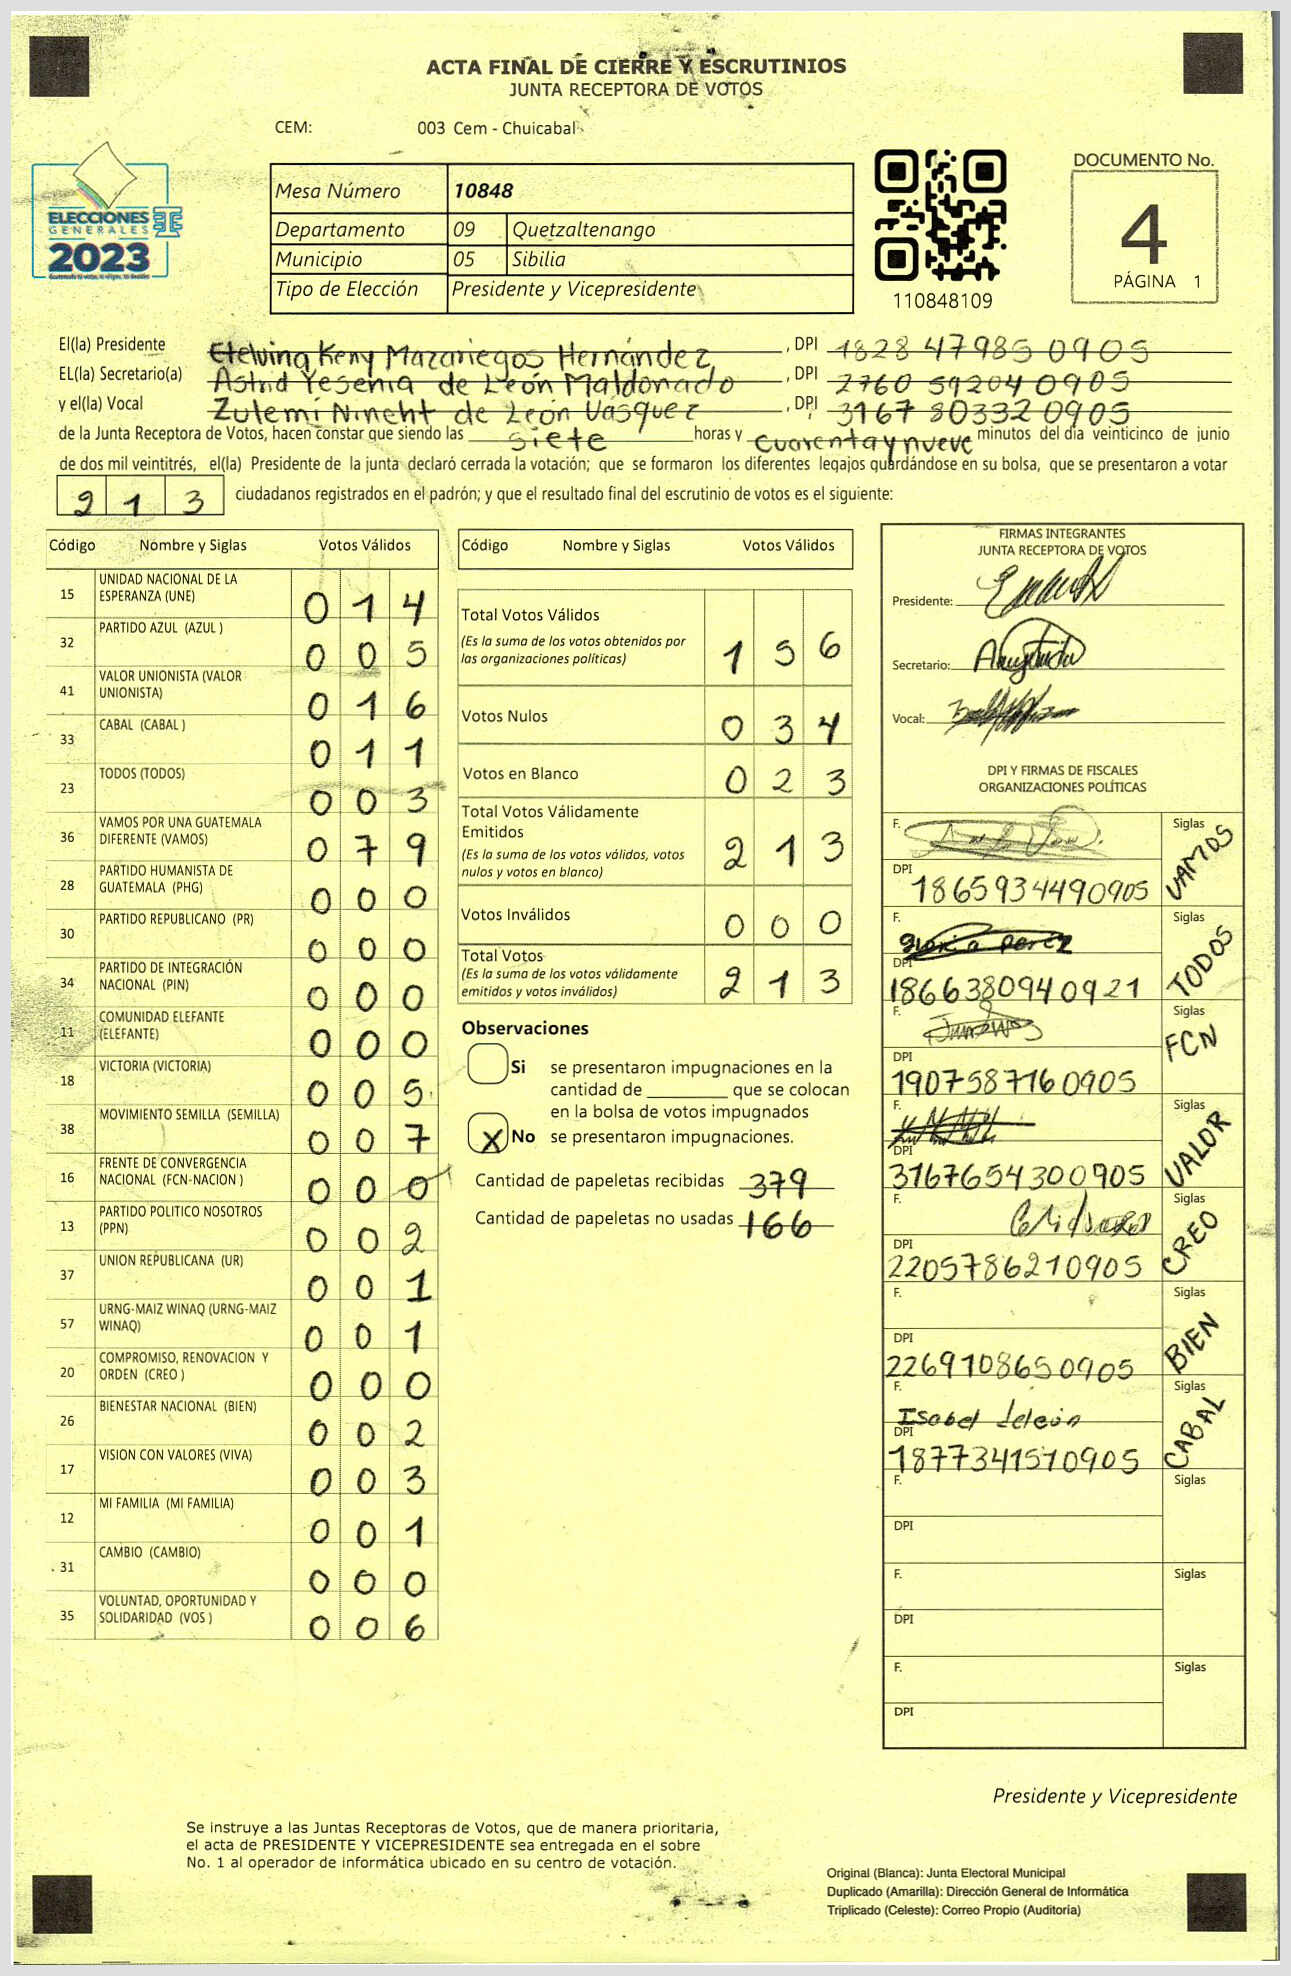 ACTA FINAL DE CIERRE Y ESCRUTINIOS
JUNTA RECEPTORA DE VOTOS
CEM: 003 Cem - Chuicabal
ELECCIONES
GENERALES
2023
Mesa Número 10848
Departamento 09 Quetzaltenango
Municipio 05 Sibilia
Tipo de Elección Presidente y Vicepresidente
110848109
DOCUMENTO No.
4
PÁGINA 1
El(la) Presidente Etelvina Keny Mazariegos Hernández, DPI 1828 47985 0905
EL(la) Secretario(a) Astrid Yesenia de León Maldonado, DPI 2760 59204 0905
y el(la) Vocal Zulemi Nineht de León Vásquez, DPI 3167 80332 0905
de la Junta Receptora de Votos, hacen constar que siendo las siete horas y cuarenta y nueve minutos del día veinticinco de junio
de dos mil veintitrés, el(la) Presidente de la junta declaró cerrada la votación; que se formaron los diferentes legajos guardándose en su bolsa, que se presentaron a votar
213 ciudadanos registrados en el padrón; y que el resultado final del escrutinio de votos es el siguiente:
Código Nombre y Siglas Votos Válidos
15 UNIDAD NACIONAL DE LA ESPERANZA (UNE) 014
32 PARTIDO AZUL (AZUL ) 005
41 VALOR UNIONISTA (VALOR UNIONISTA) 016
33 CABAL (CABAL ) 011
23 TODOS (TODOS) 003
36 VAMOS POR UNA GUATEMALA DIFERENTE (VAMOS) 079
28 PARTIDO HUMANISTA DE GUATEMALA (PHG) 000
30 PARTIDO REPUBLICANO (PR) 000
34 PARTIDO DE INTEGRACIÓN NACIONAL (PIN) 000
11 COMUNIDAD ELEFANTE (ELEFANTE) 000
18 VICTORIA (VICTORIA) 005
38 MOVIMIENTO SEMILLA (SEMILLA) 007
16 FRENTE DE CONVERGENCIA NACIONAL (FCN-NACION ) 000
13 PARTIDO POLITICO NOSOTROS (PPN) 002
37 UNION REPUBLICANA (UR) 001
57 URNG-MAIZ WINAQ (URNG-MAIZ WINAQ) 001
20 COMPROMISO, RENOVACION Y ORDEN (CREO ) 000
26 BIENESTAR NACIONAL (BIEN) 002
17 VISION CON VALORES (VIVA) 003
12 MI FAMILIA (MI FAMILIA) 001
31 CAMBIO (CAMBIO) 000
35 VOLUNTAD, OPORTUNIDAD Y SOLIDARIDAD (VOS ) 006
Código Nombre y Siglas Votos Válidos
Total Votos Válidos 156
(Es la suma de los votos obtenidos por
las organizaciones políticas)
Votos Nulos 034
Votos en Blanco 023
Total Votos Válidamente
Emitidos 213
(Es la suma de los votos válidos, votos
nulos y votos en blanco)
Votos Inválidos 000
Total Votos 213
(Es la suma de los votos válidamente
emitidos y votos inválidos)
Observaciones
Si se presentaron impugnaciones en la
cantidad de ________ que se colocan
en la bolsa de votos impugnados
X No se presentaron impugnaciones.
Cantidad de papeletas recibidas 379
Cantidad de papeletas no usadas 166
FIRMAS INTEGRANTES
JUNTA RECEPTORA DE VOTOS
Presidente:
Secretario:
Vocal:
DPI Y FIRMAS DE FISCALES
ORGANIZACIONES POLÍTICAS
F. Siglas VAMOS
DPI 1865934490905
F. Siglas TODOS
DPI 1866380940921
F. Siglas FCN
DPI 1907587160905
F. Siglas VALOR
DPI 3167654300905
F. Siglas CREO
DPI 2205786210905
F. Siglas BIEN
DPI 2269108650905
F. Isabel deleón Siglas CABAL
DPI 1877341510905
F. Siglas
DPI
F. Siglas
DPI
F. Siglas
DPI
Presidente y Vicepresidente
Se instruye a las Juntas Receptoras de Votos, que de manera prioritaria,
el acta de PRESIDENTE Y VICEPRESIDENTE sea entregada en el sobre
No. 1 al operador de informática ubicado en su centro de votación.
Original (Blanca): Junta Electoral Municipal
Duplicado (Amarilla): Dirección General de Informática
Triplicado (Celeste): Correo Propio (Auditoría)